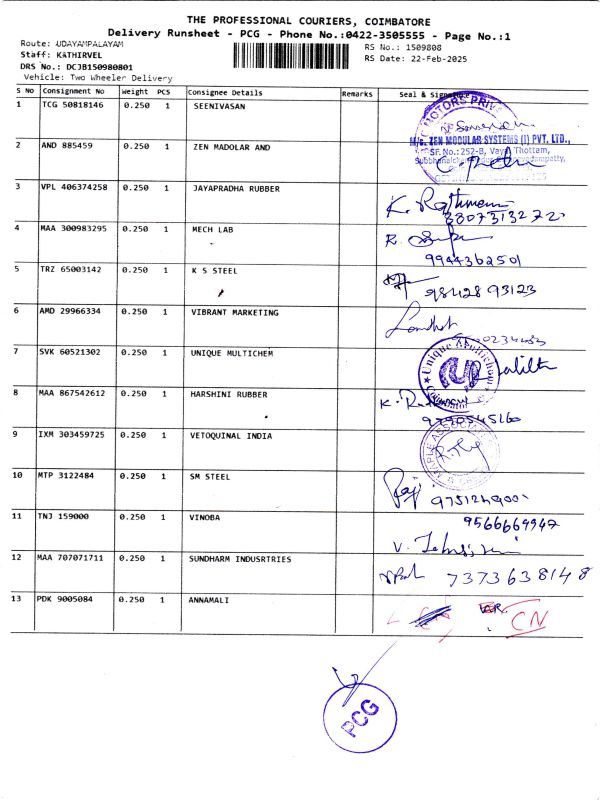 THE PROFESSIONAL COURIERS, COIMBATORE
Delivery Runsheet - PCG - Phone No.:0422-3505555 - Page No.:1
Route: UDAYAMPALAYAM
RS No.: 1509808
Staff: KATHIRVEL
RS Date: 22-Feb-2025
DRS No.: DCJB150980801
Vehicle: Two Wheeler Delivery
S No Consignment No Weight PCS Consignee Details Remarks Seal & Signature
1 TCG 50818146 0.250 1 SEENIVASAN
MOTORS PRIVA
2 AND 885459 0.250 1 ZEN MADOLAR AND
M/s. ZEN MODULAR SYSTEMS (I) PVT. LTD.,
SF.No.:252-B, Vayal Thottam,
3 VPL 406374258 0.250 1 JAYAPRADHA RUBBER
K.
4 MAA 300983295 0.250 1 MECH LAB
R.
9944362501
5 TRZ 65003142 0.250 1 K S STEEL
9842893123
6 AMD 29966334 0.250 1 VIBRANT MARKETING
7 SVK 60521302 0.250 1 UNIQUE MULTICHEM
Unique Multichem
8 MAA 867542612 0.250 1 HARSHINI RUBBER
K.
9790545160
9 IXM 303459725 0.250 1 VETOQUINAL INDIA
MAPLE ASSOCIA
10 MTP 3122484 0.250 1 SM STEEL
Raji
11 TNJ 159000 0.250 1 VINOBA
9566669947
V.
12 MAA 707071711 0.250 1 SUNDHARM INDUSRTRIES
7373638148
13 PDK 9005084 0.250 1 ANNAMALI
CN
PCG